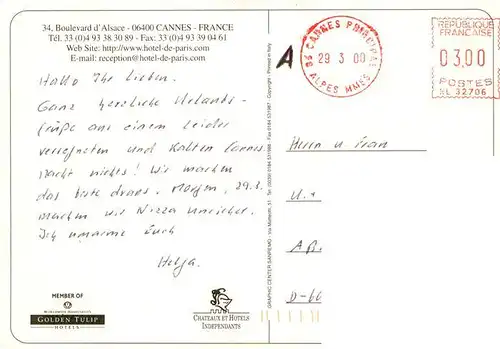 34, Boulevard d'Alsace - 06400 CANNES - FRANCE
Tél. 33 (0)4 93 38 30 89 - Fax: 33 (0)4 93 39 04 61
Web Site: http://www.hotel-de-paris.com
E-mail: reception@hotel-de-paris.com
Hallo Ihr Lieben.
Ganz herzliche Urlaubs-
grüße aus einem leider
verregneten und kalten Cannes.
Macht nichts! Wir machen
das beste draus. Morgen, 29.3.
machen wir Nizza unsicher.
Ich umarme Euch
Helga.
MEMBER OF
GOLDEN TULIP
HOTELS
CHATEAUX ET HOTELS
INDEPENDANTS
GRAPHIC CENTER SANREMO - Via
Copyright - Printed in Italy
A
06 CANNES PRINCIPAL
29 3 00
ALPES MMES
REPUBLIQUE
FRANCAISE
03,00
POSTES
32706
Herrn u Frau
D-66